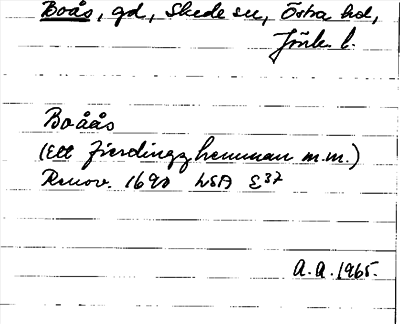 Boås, gd, Skede sn, Östra hd,
Jönk. l.
Boåås
(Ett fierdingz hemman m.m.)
Renov. 1690 LSA E37
A.A. 1965.